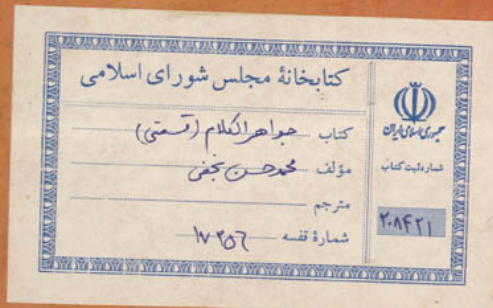 کتابخانهٔ مجلس شورای اسلامی
کتاب جواهر الکلام (قسمتی)
مؤلف محمد حسن نجفی
مترجم
شمارهٔ قفسه ۱۷۳۵۶
جمهوری اسلامی ایران
شماره ثبت کتاب
۲۰۸۴۲۱